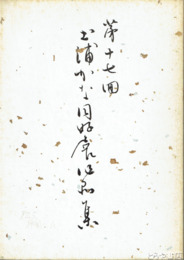 第十七回
土浦かな同好展作品集